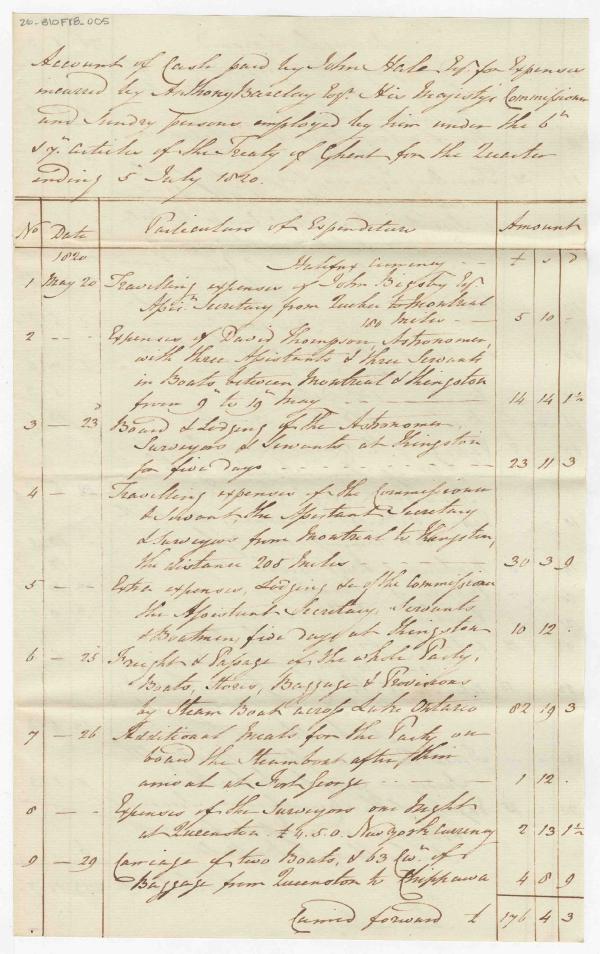 26-B10F18-005
Account of Cash paid by John Hale Esqr. for Expenses
incured by Anthony Barclay Esqr. His Majesty's Commissioner
and Sundry persons employed by him under the 6th
& 7th. article of the Treaty of Ghent for the Quarter
ending 5th July 1820.
No Date Particulars of Expenditure Amount
1820 Halifax Currency -- £ s d
1 May 20 Travelling expenses of John Bigsby Esqr.
Assist. Secretary from Quebec to Montreal
180 Miles -- 5 10 -
2 - - - Expenses of David Thompson, Astronomer,
with three Assistants & three Servants
in Boats between Montreal & Kingston
from 9th to 19th May -- 14 14 1½
3 - 23d Board & Lodging of the Astronomer,
Surveyors & Servants at Kingston
for five days - - - 23 11 3
4 - - Travelling expenses of the Commissioner
& Servant, the Assistant Secretary
& Surveyors from Montreal to Kingston,
the distance 208 Miles - - 30 3 9
5 - - Extra expenses, Lodging &c of the Commissioner
the Assistant Secretary, Servants
& Boatmen, five days at Kingston 10 12 .
6 - 25 Freight & Passage of the whole Party,
Boats, Stores, Baggage & Provisions
by Steam Boat across Lake Ontario 82 19 3
7 - 26 Additional meals for the Party on
board the Steamboat after their
arrival at Fort George - - - 1 12 .
8 - - Expenses of the Surveyors one Night
at Queenston £4.5.0. New York Currency 2 13 1½
9 - 29 Carriage of two Boats, & 63 Cwt. of
Baggage from Queenston to Chippawa 4 8 9
Carried forward £ 176 4 3